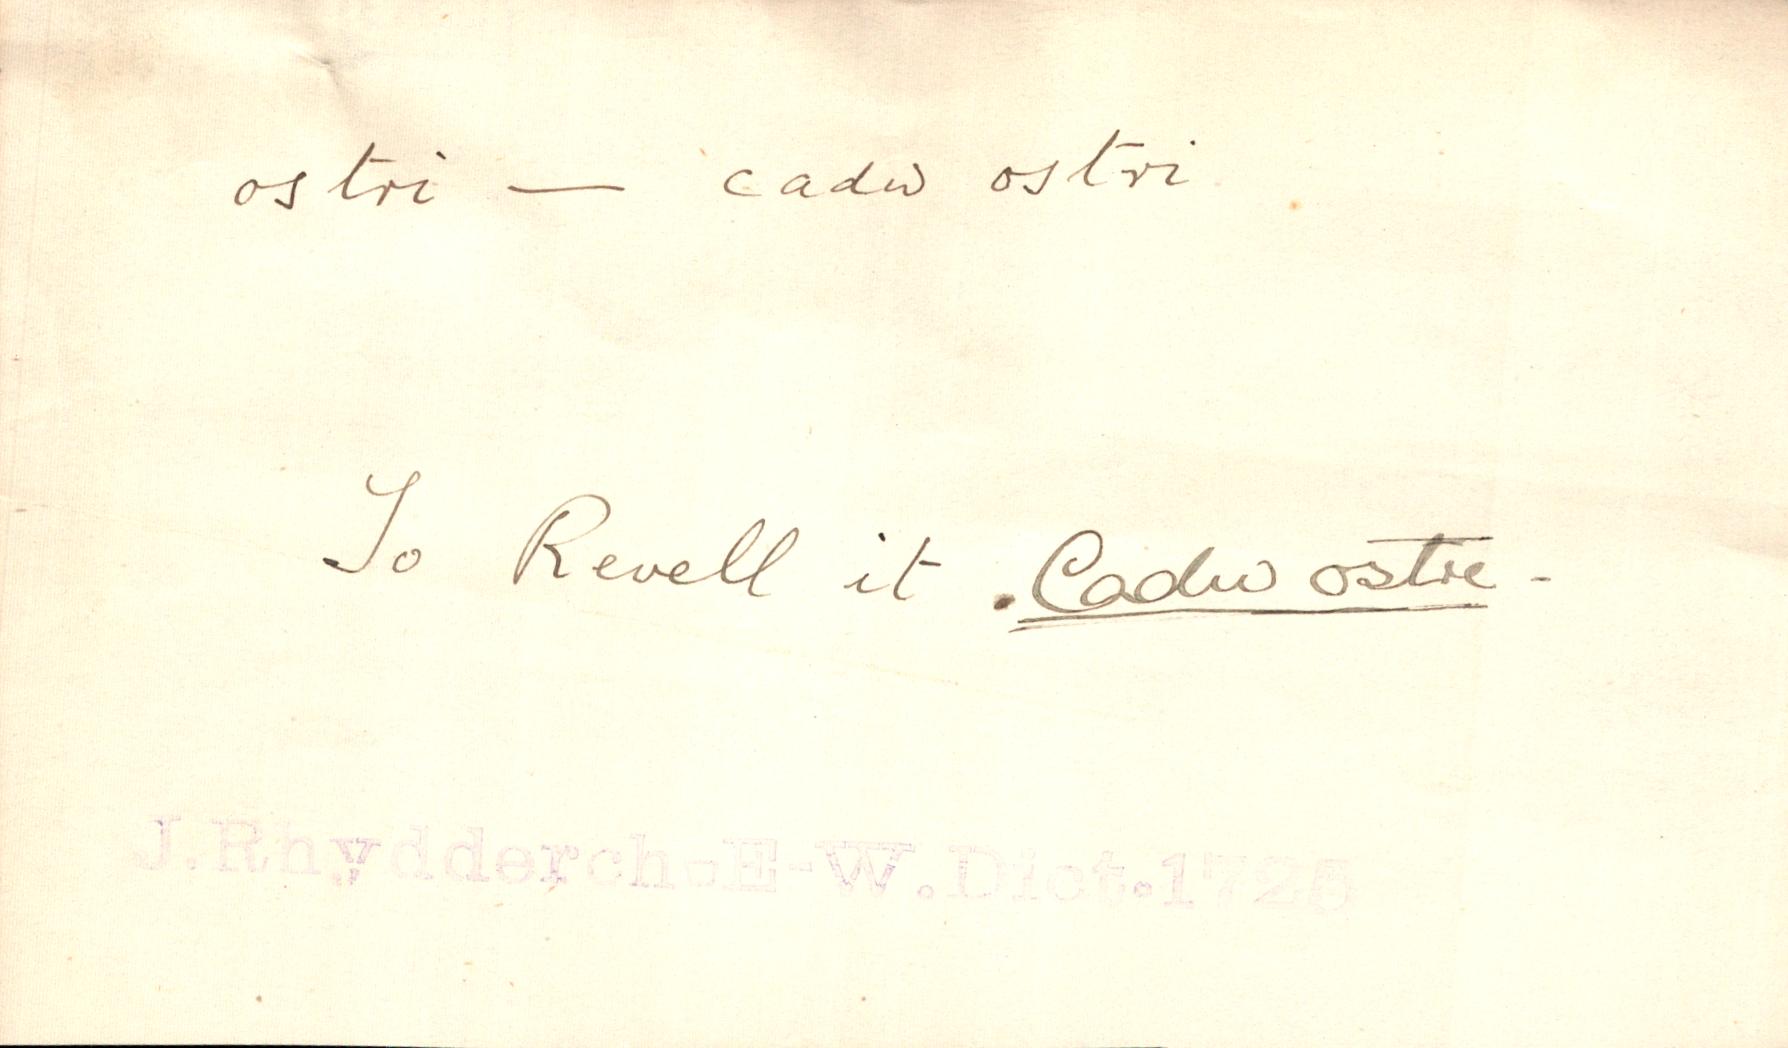 ostri — cadw ostri
To Revell it . Cadw ostre -
J.Rhydderch-E-W.Dict.1725